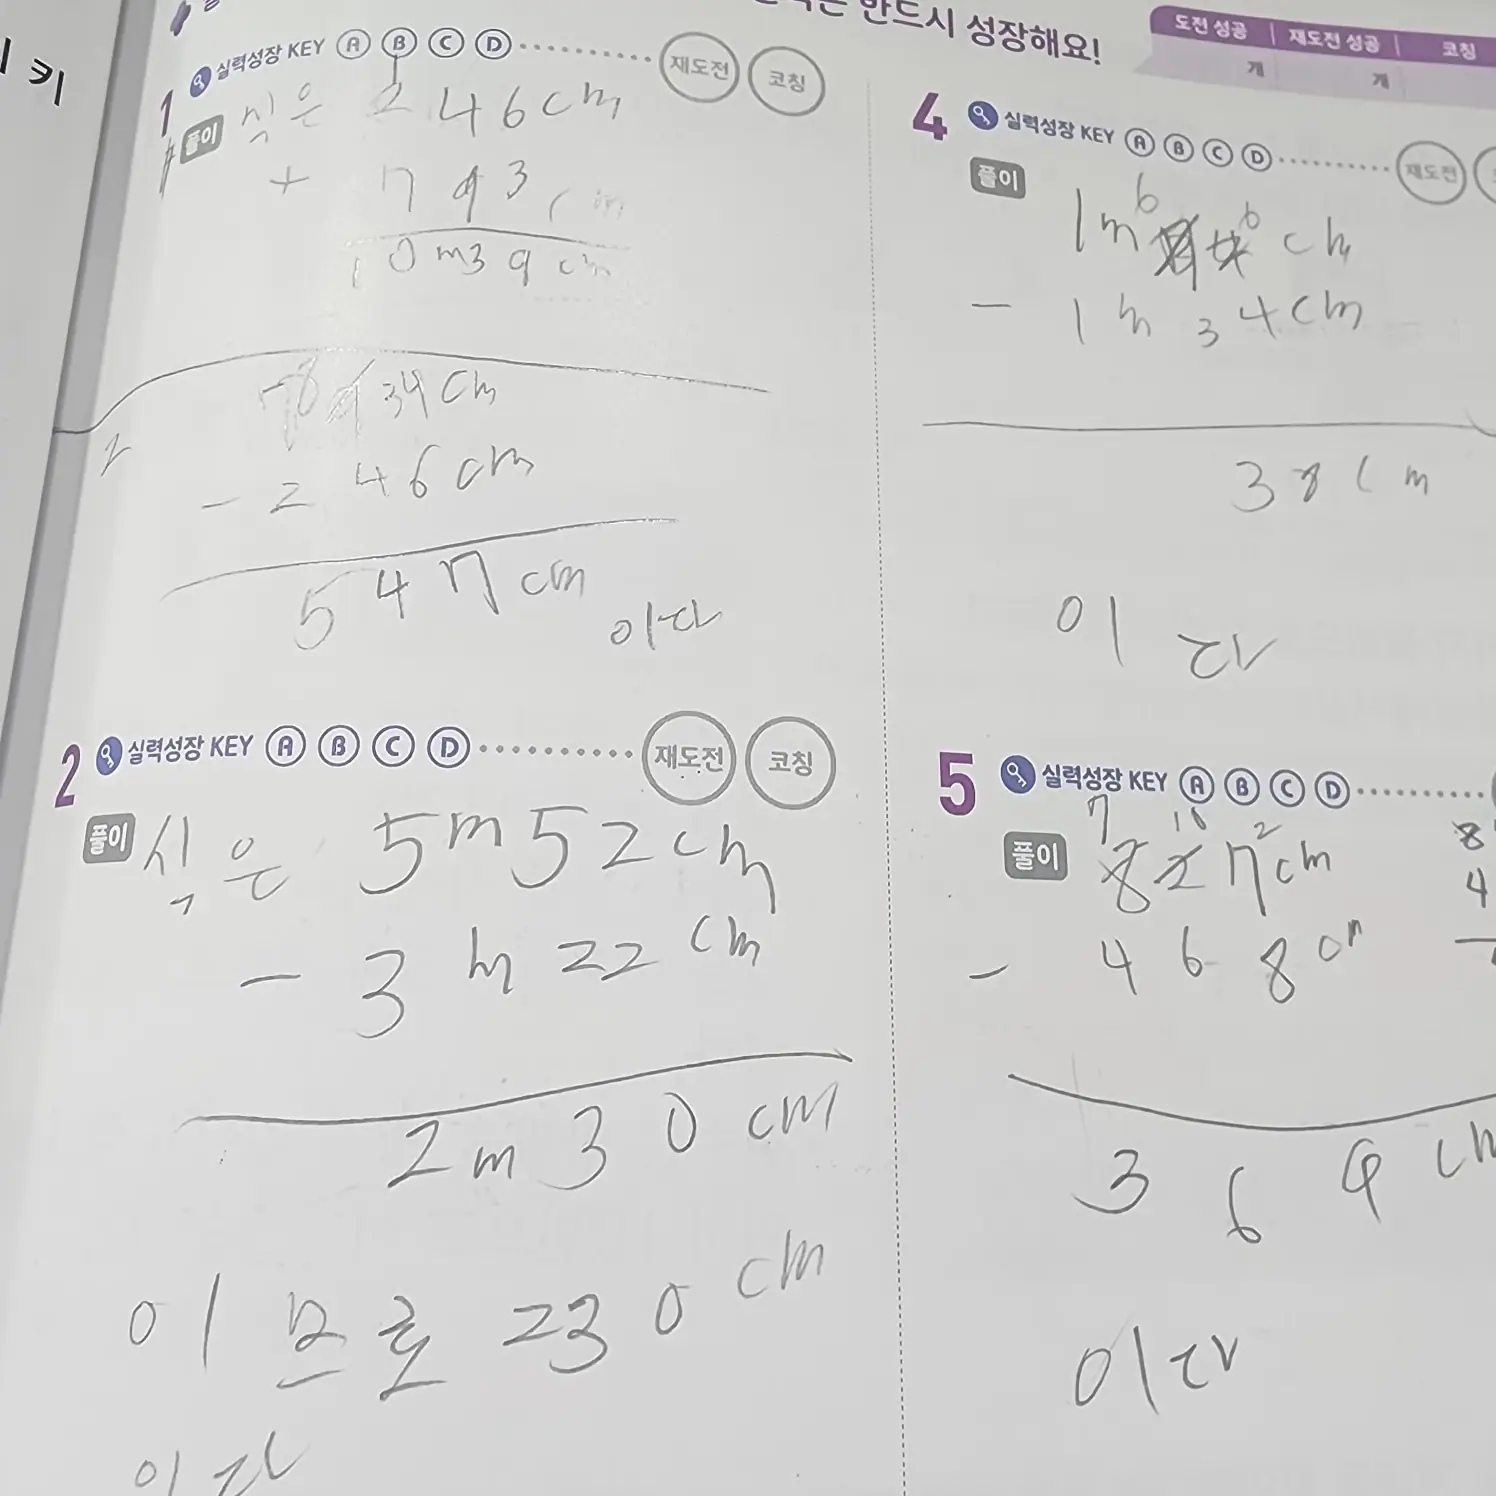 키
반드시 성장해요!
도전 성공 재도전 성공 코칭
개 개
1 실력성장 KEY A B C D 재도전 코칭
풀이 식은 246cm
+ 793cm
10m39cm
2
34cm
- 246cm
547cm
이다
2 실력성장 KEY A B C D 재도전 코칭
풀이 식은 5m52cm
- 3m22cm
2m30cm
이므로 230cm
이다
4 실력성장 KEY A B C D 재도전
풀이
6 6
1m cm
- 1m34cm
3 cm
이다
5 실력성장 KEY A B C D
7 2
풀이 827cm 8
- 468cm 4
369cm
이다